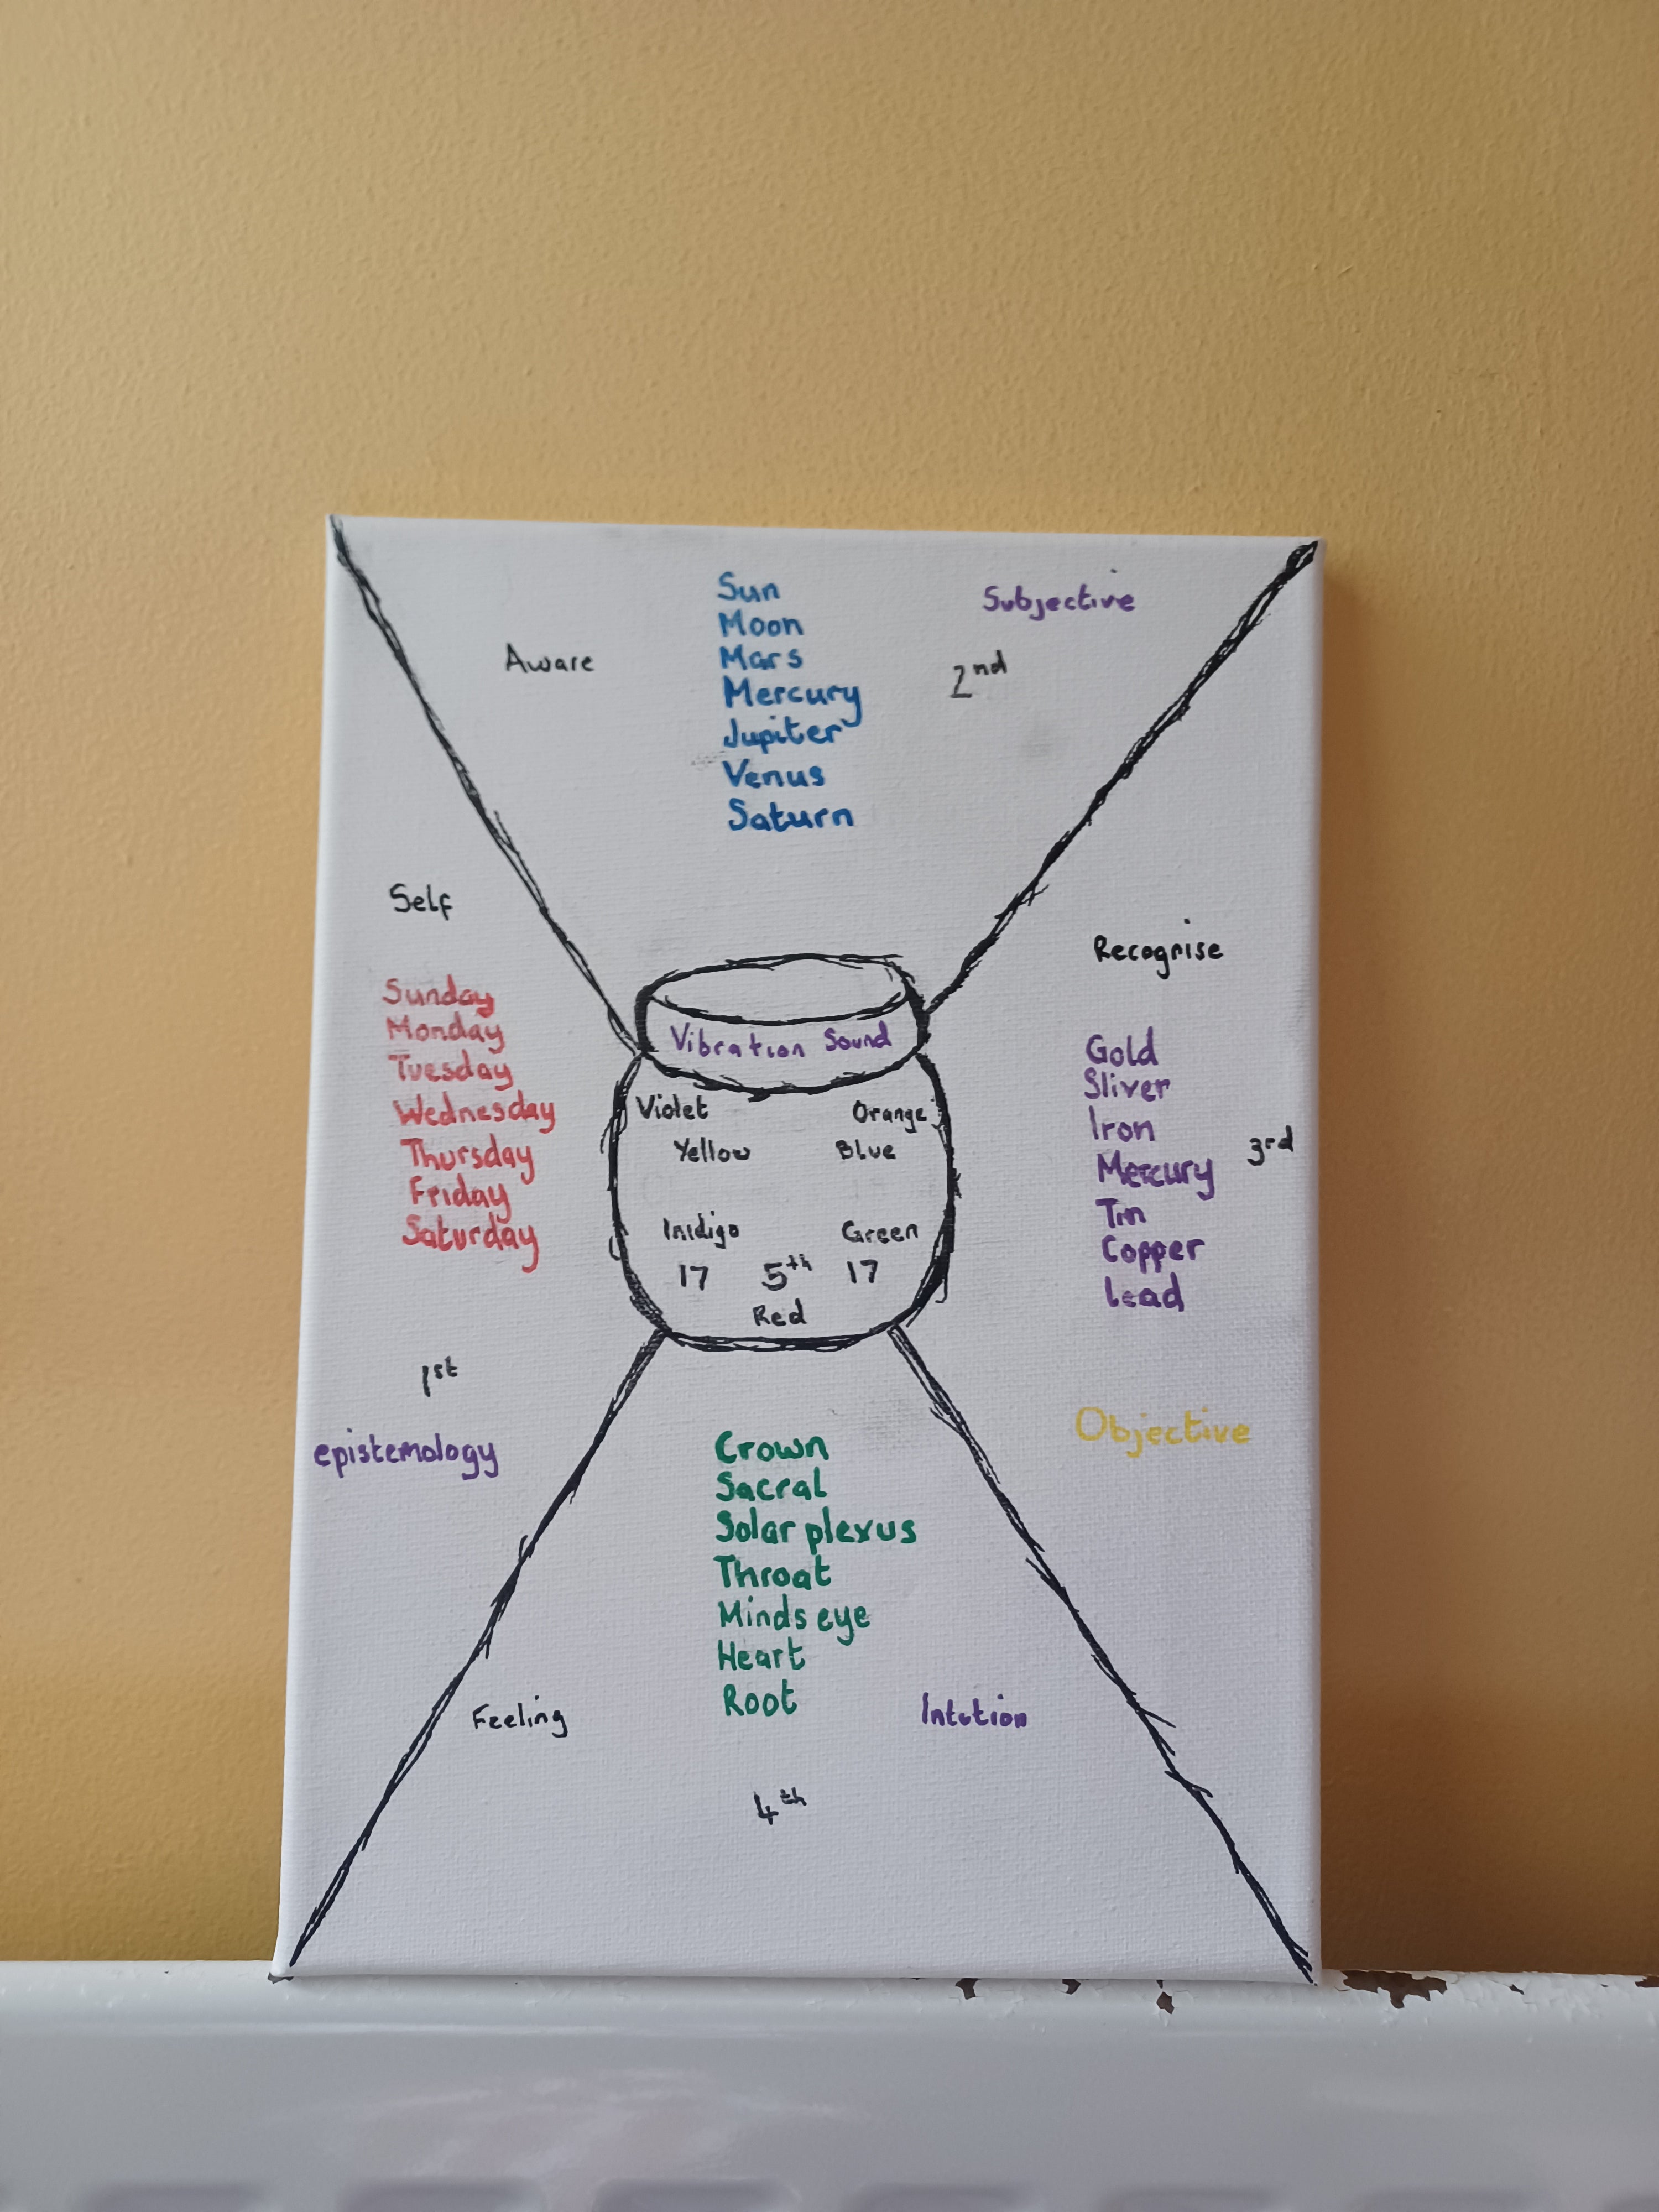 Sun
Moon
Mars
Mercury
Jupiter
Venus
Saturn
Aware
Subjective
2nd
Self
Sunday
Monday
Tuesday
Wednesday
Thursday
Friday
Saturday
1st
epistemology
Vibration Sound
Violet Orange
Yellow Blue
Inidigo Green
17 5th 17
Red
Recognise
Gold
Sliver
Iron
Mercury
Tin
Copper
lead
3rd
Objective
Crown
Sacral
Solar plexus
Throat
Minds eye
Heart
Root
Feeling
Intution
4th